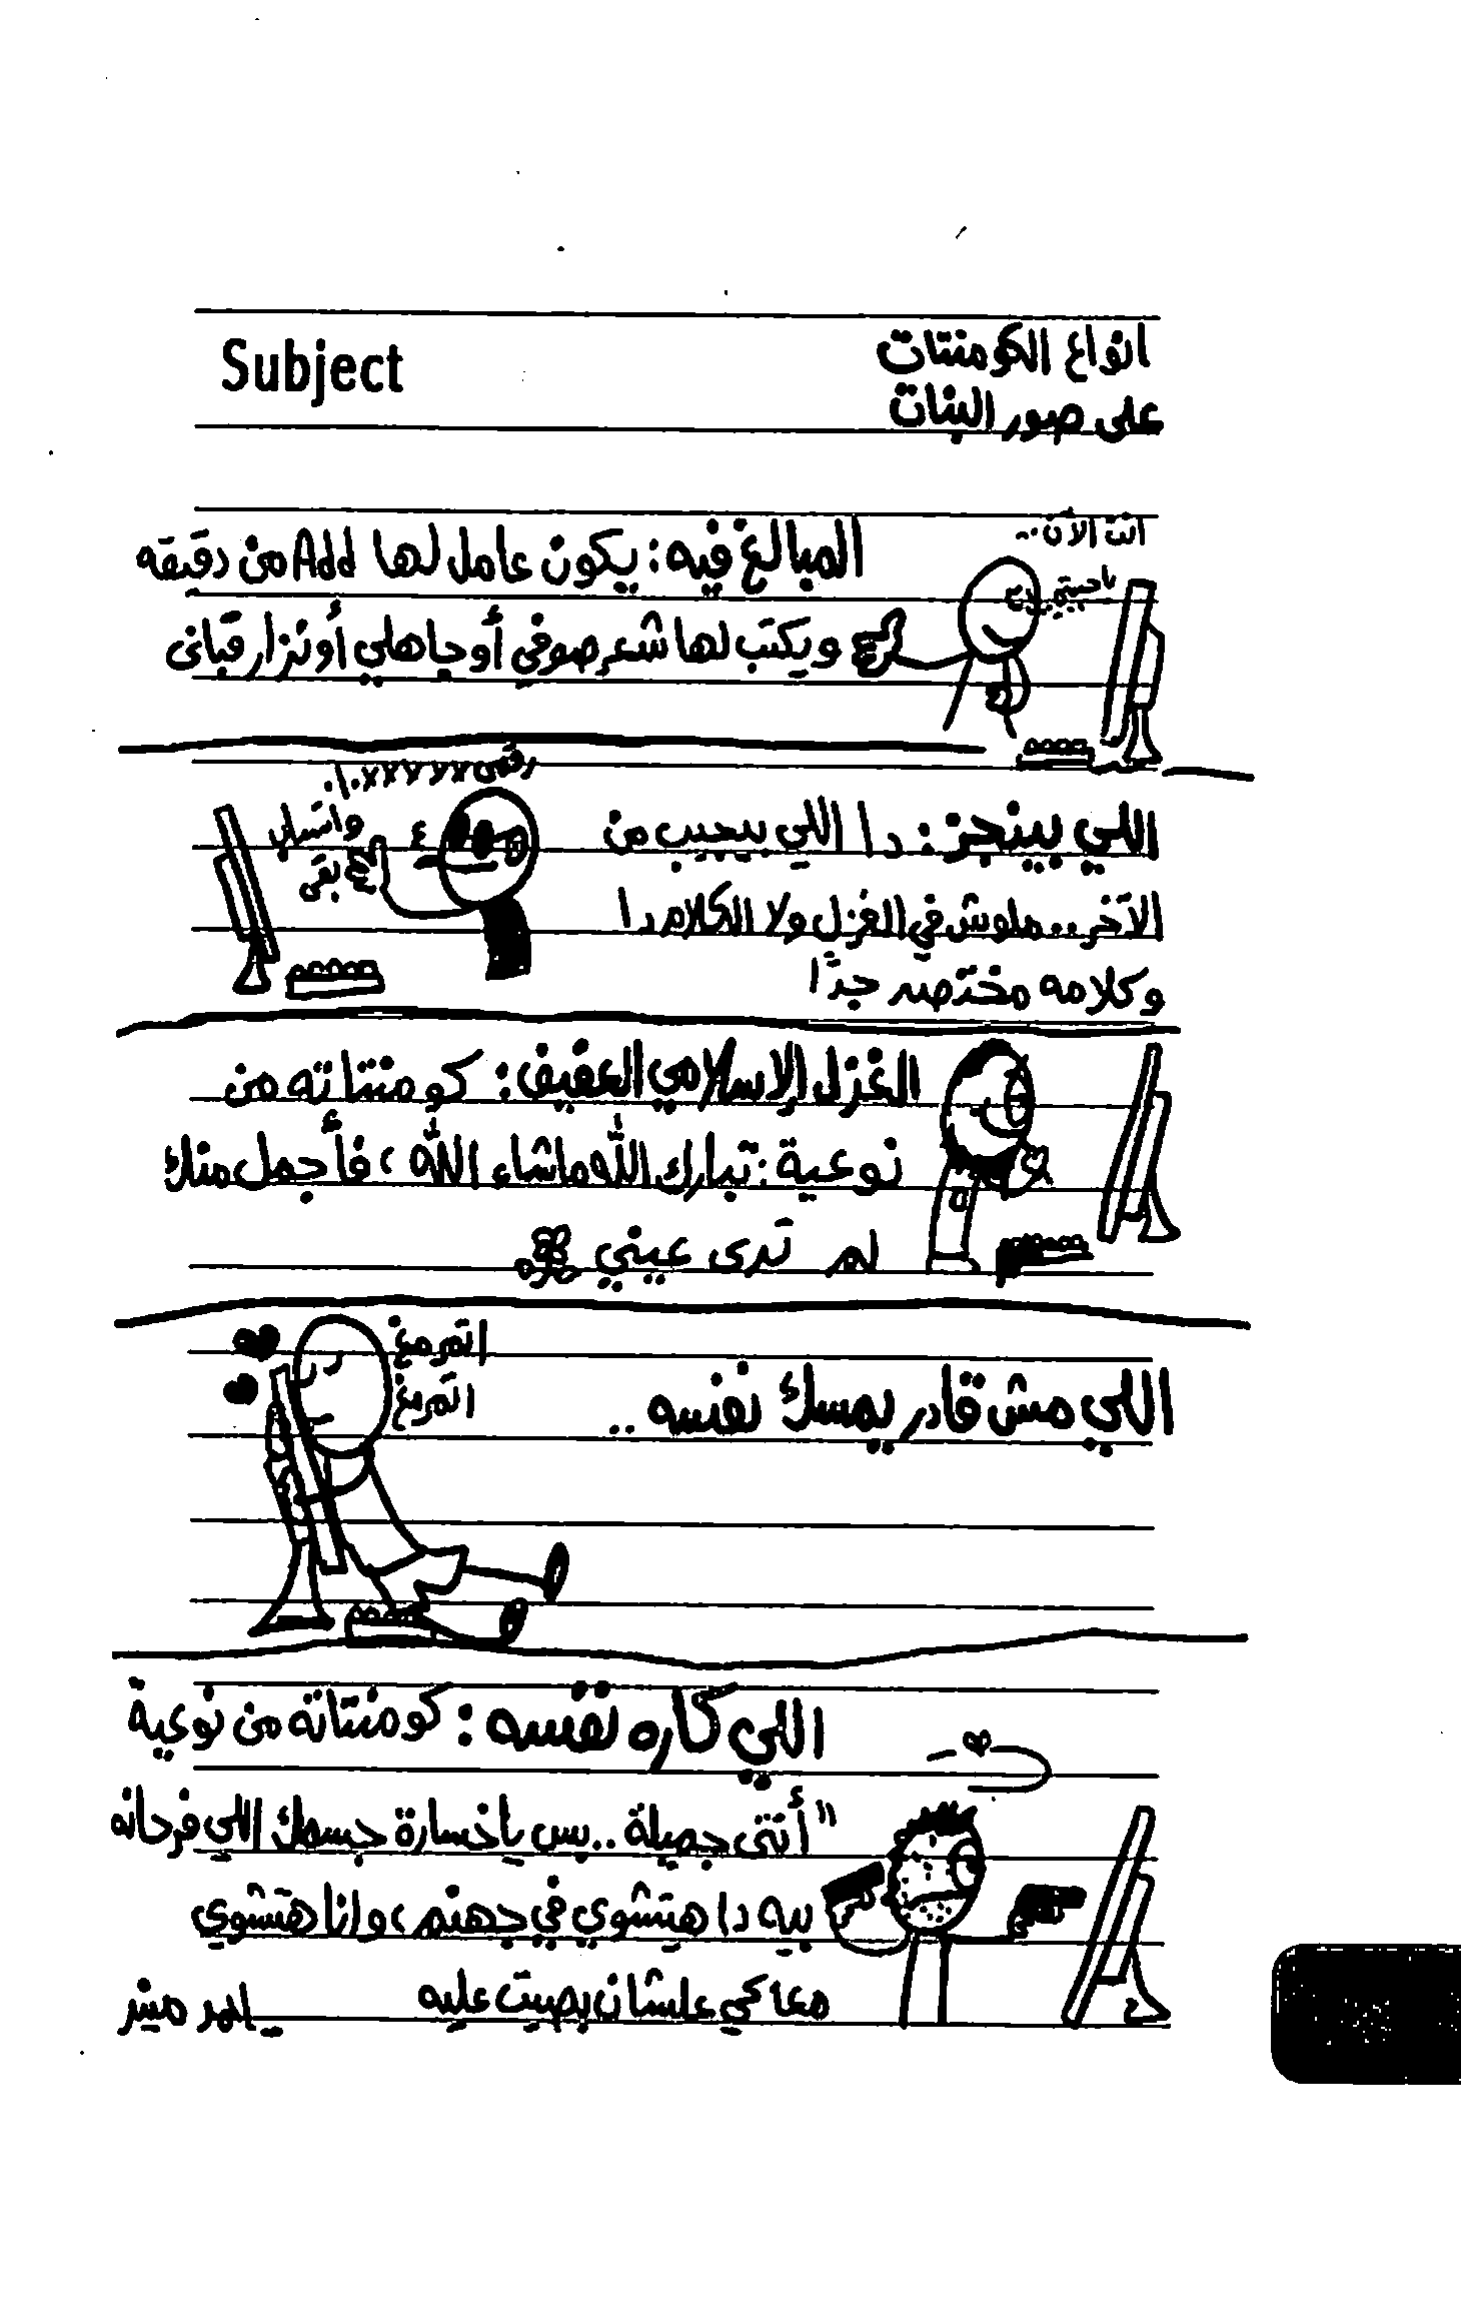 Subject
انواع الكومنتات
على صور البنات
انت الآن..
المبالغ فيه: يكون عامل لها Add من دقيقه
ويكتب لها شعر صوفي أو جاهلي أو نزار قباني
رقمي
واتساب
بقى
اللي بينجز: دا اللي بيجيب من
الآخر.. ملوش في الغزل ولا الكلام دا
وكلامه مختصر جدًا
الغزل الإسلامي العفيف: كومنتاته من
نوعية: تبارك الله ماشاء الله، فأجمل منك
لم ترى عيني
اتمرمغ
اتمرمغ
اللي مش قادر يمسك نفسه..
اللي كاره نفسه: كومنتاته من نوعية
"أنتي جميلة.. بس ياخسارة جسمك اللي فرحانه
بيه دا هيتشوي في جهنم، وانا هتشوي
معاكي علشان بصيت عليه